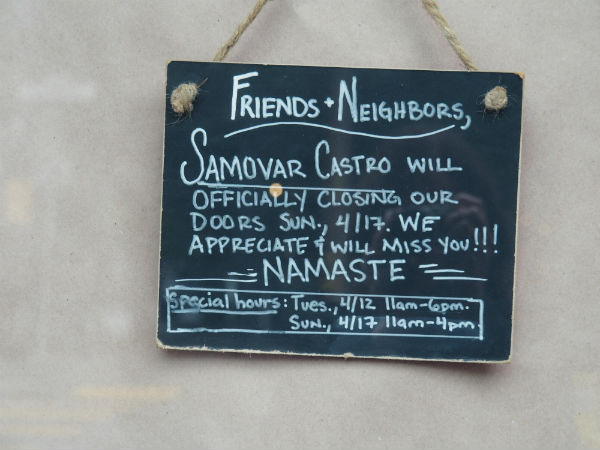 FRIENDS + NEIGHBORS,
SAMOVAR CASTRO WILL
OFFICIALLY CLOSING OUR
DOORS SUN., 4/17. WE
APPRECIATE & WILL MISS YOU!!!
NAMASTE
Special hours: Tues., 4/12 11am-6pm.
Sun., 4/17 11am-4pm.